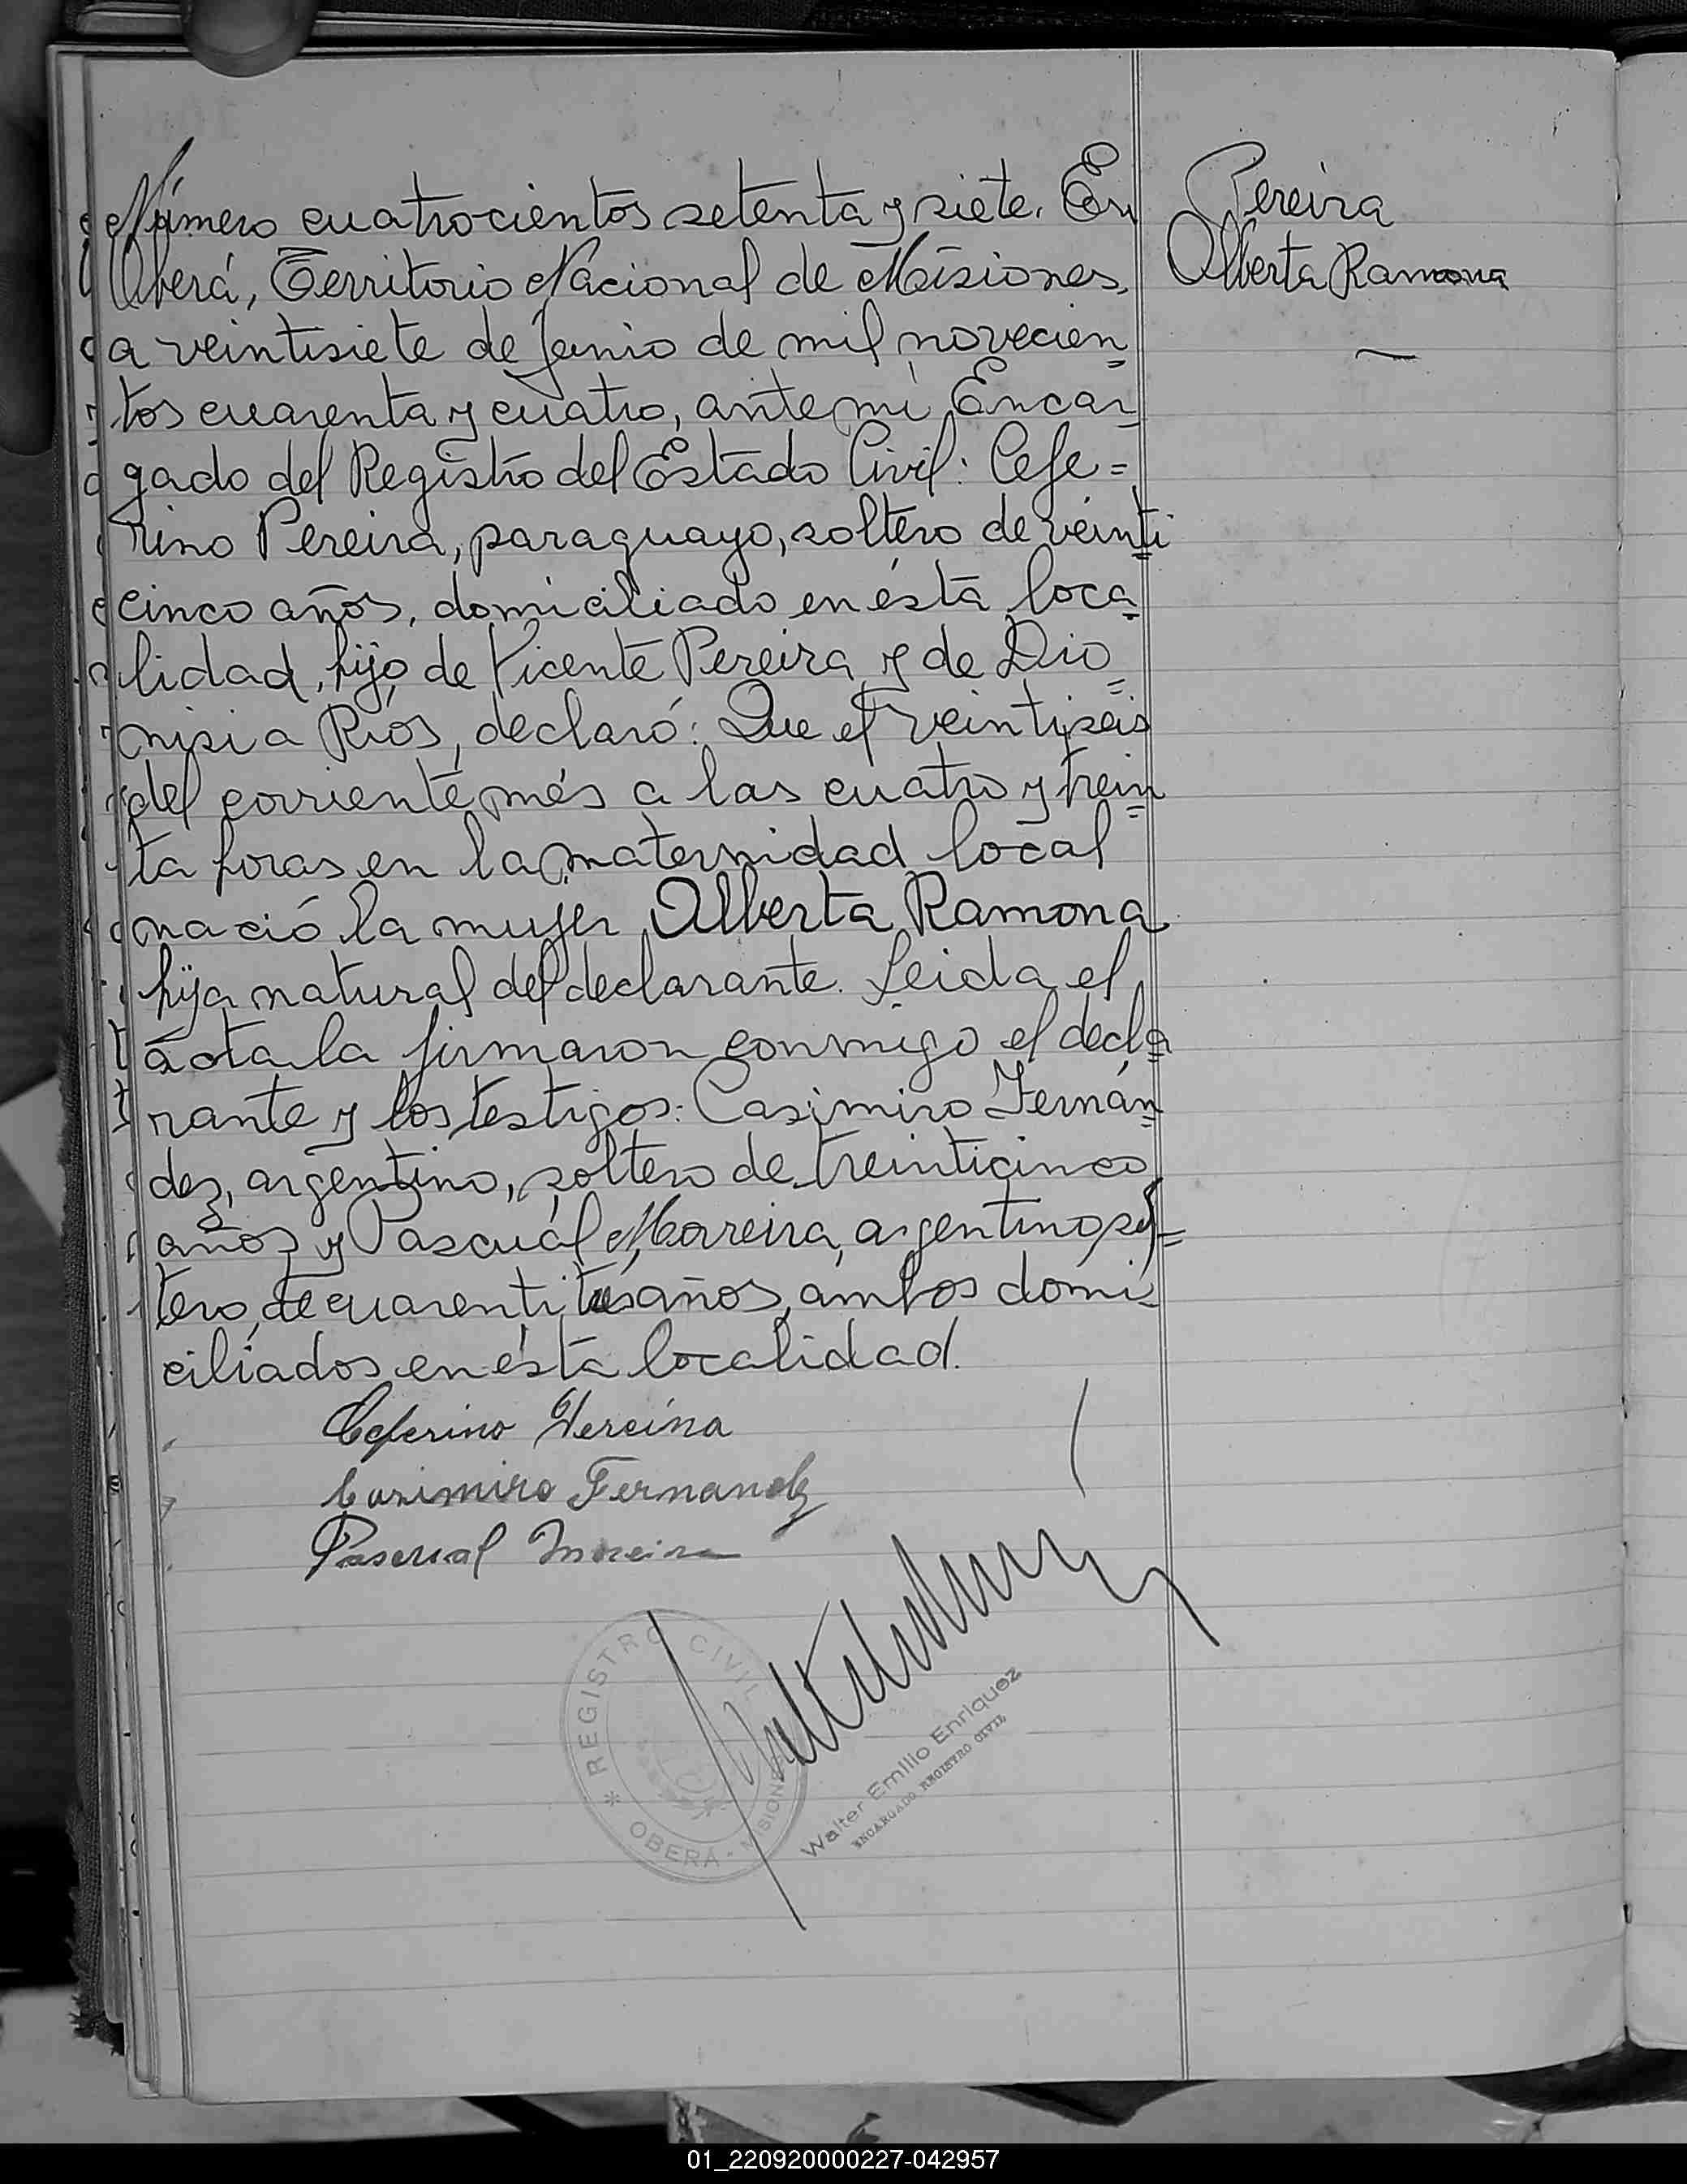 Número cuatrocientos setenta y siete. En
Oberá, Territorio Nacional de Misiones,
a veintisiete de junio de mil novecien=
tos cuarenta y cuatro, ante mi Encar_
gado del Registro del Estado Civil: Cefe=
rino Pereira, paraguayo, soltero de veinti=
cinco años, domiciliado en ésta loca_
lidad, hijo de Vicente Pereira y de Dio=
nisia Ríos, declaró: Que el veintiseis
del corriente més a las cuatro y trein=
ta horas en la maternidad local
nació la mujer Alberta Ramona
hija natural del declarante. Leida el
acta la firmaron conmigo el decla
rante y los testigos: Casimiro Fernán=
dez, argentino, soltero de treinticinco
años y Pascual Moreira, argentino sol=
tero, de cuarentitres años, ambos domi_
ciliados en ésta localidad.
Pereira
Alberta Ramona
Ceferino Pereira
Casimiro Fernandez
Pascual Moreira
* REGISTRO CIVIL
OBERÁ - MISIONES
Walter Emilio Enriquez
ENCARGADO REGISTRO CIVIL
01_220920000227-042957